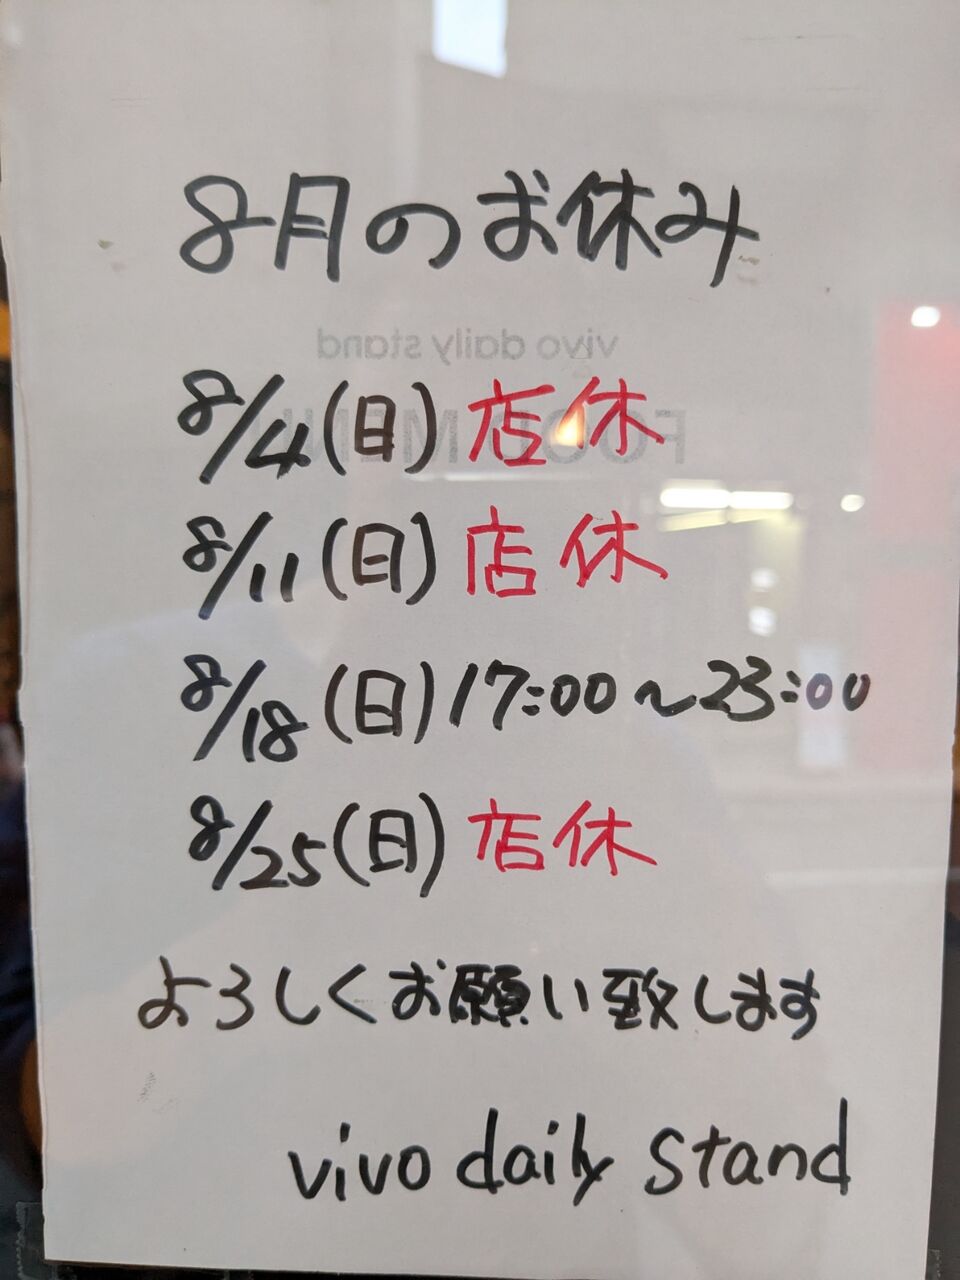 8月のお休み
vivo daily stand
FOOD MENU
8/4(日) 店休
8/11(日) 店休
8/18(日) 17:00~23:00
8/25(日) 店休
よろしくお願い致します
vivo daily stand